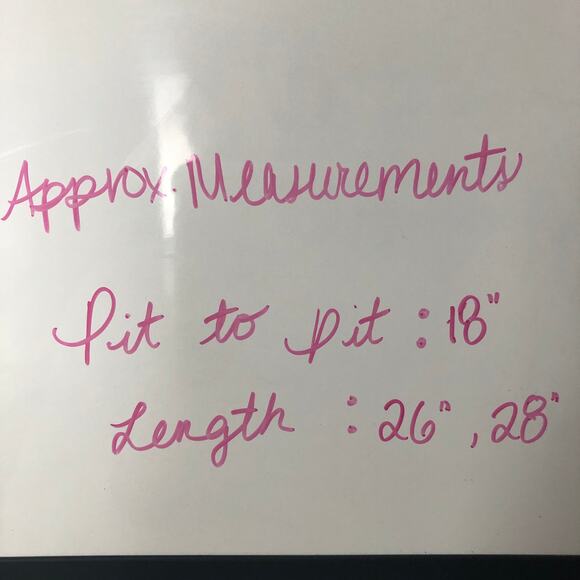 Approx. Measurements
Pit to pit : 18"
Length : 26", 28"